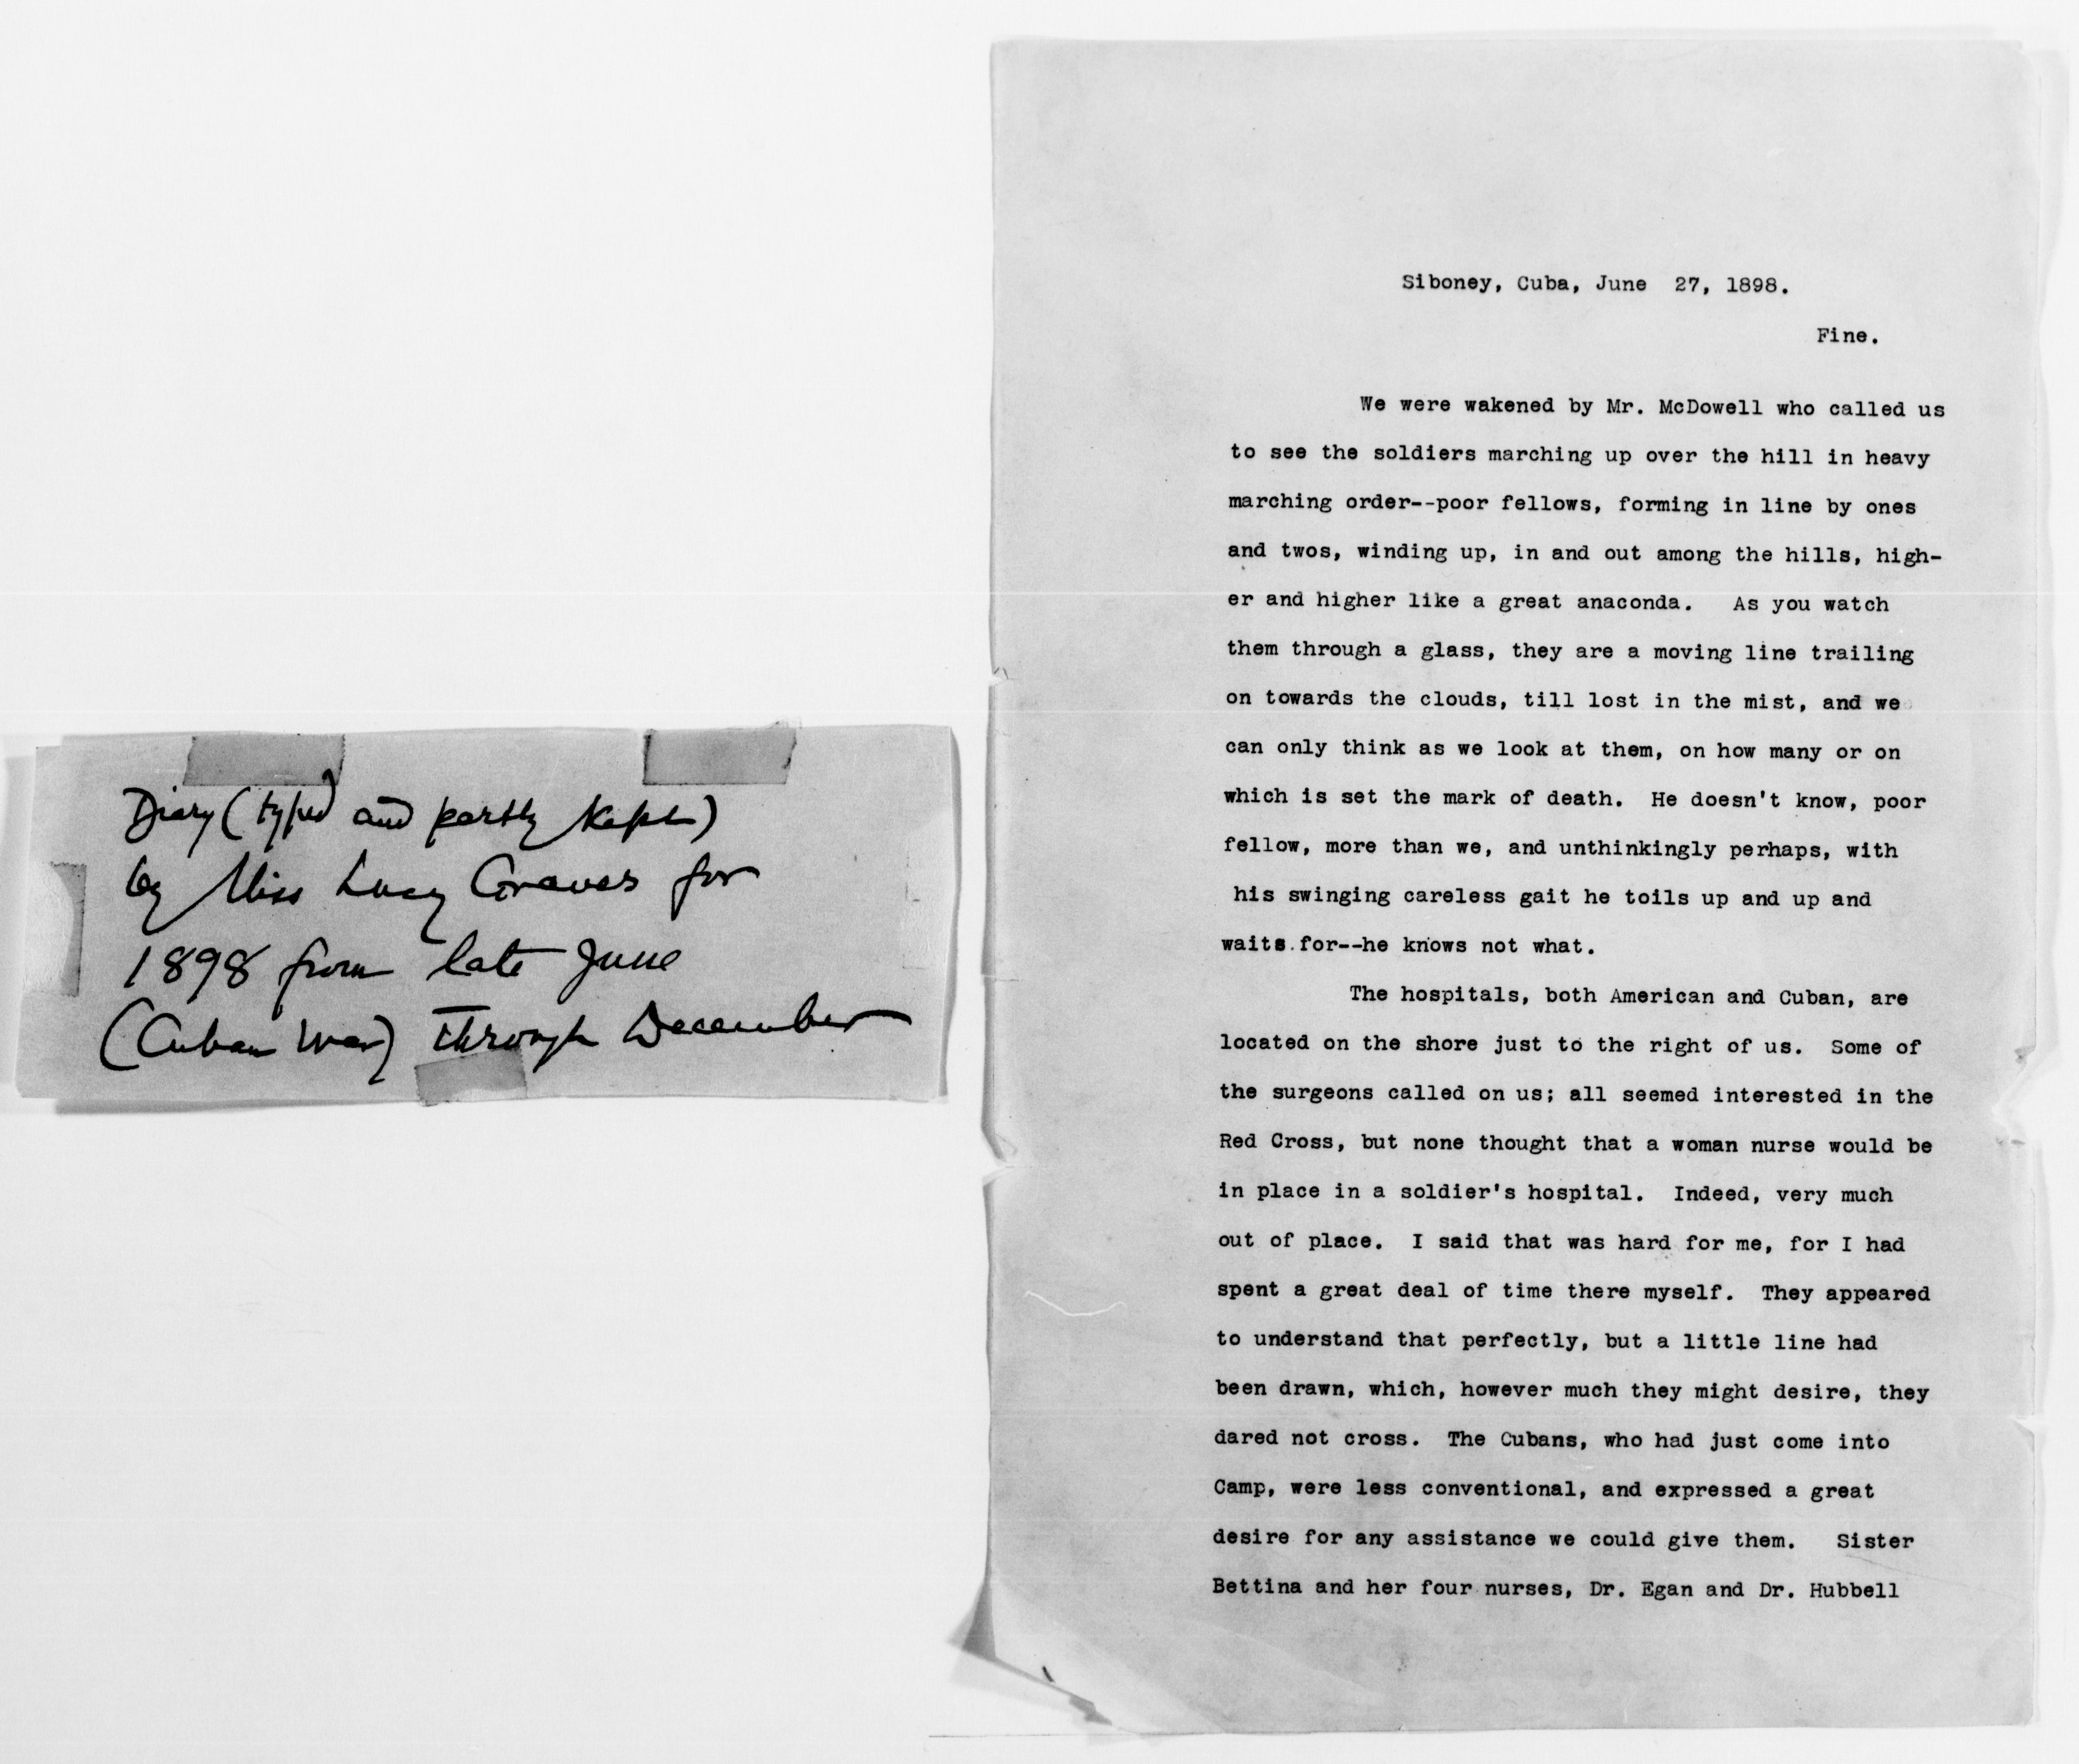 Diary (typed and partly kept)
by Miss Lucy Graves for
1898 from late June
(Cuban War) through December
Siboney, Cuba, June 27, 1898.
Fine.
We were wakened by Mr. McDowell who called us
to see the soldiers marching up over the hill in heavy
marching order--poor fellows, forming in line by ones
and twos, winding up, in and out among the hills, high-
er and higher like a great anaconda. As you watch
them through a glass, they are a moving line trailing
on towards the clouds, till lost in the mist, and we
can only think as we look at them, on how many or on
which is set the mark of death. He doesn't know, poor
fellow, more than we, and unthinkingly perhaps, with
his swinging careless gait he toils up and up and
waits for--he knows not what.
The hospitals, both American and Cuban, are
located on the shore just to the right of us. Some of
the surgeons called on us; all seemed interested in the
Red Cross, but none thought that a woman nurse would be
in place in a soldier's hospital. Indeed, very much
out of place. I said that was hard for me, for I had
spent a great deal of time there myself. They appeared
to understand that perfectly, but a little line had
been drawn, which, however much they might desire, they
dared not cross. The Cubans, who had just come into
Camp, were less conventional, and expressed a great
desire for any assistance we could give them. Sister
Bettina and her four nurses, Dr. Egan and Dr. Hubbell